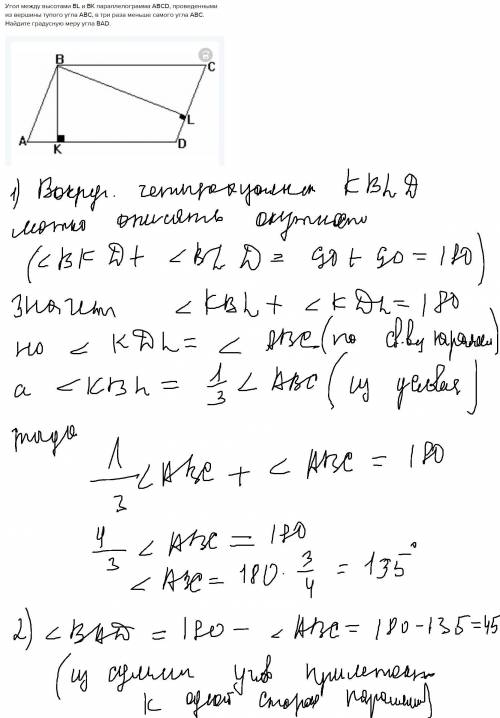 Угол между высотами BL и BK параллелограмма ABCD, проведенными
из вершины тупого угла ABC, в три раза меньше самого угла ABC.
Найдите градусную меру угла BAD.
B C
L
A K D
1) Вокруг. четырехугольника KBLD
можно описать окружность
(∠BKD + ∠BLD = 90 + 90 = 180)
Значит ∠KBL + ∠KDL = 180
но ∠KDL = ∠ABC (по св. ву паралл)
а ∠KBL = 1/3 ∠ABC (из условия)
тогда
1/3 ∠ABC + ∠ABC = 180
4/3 ∠ABC = 180
∠ABC = 180 · 3/4 = 135°
2) ∠BAD = 180 - ∠ABC = 180 - 135 = 45
(из суммы углов прилежащ
к одной стороне параллел)